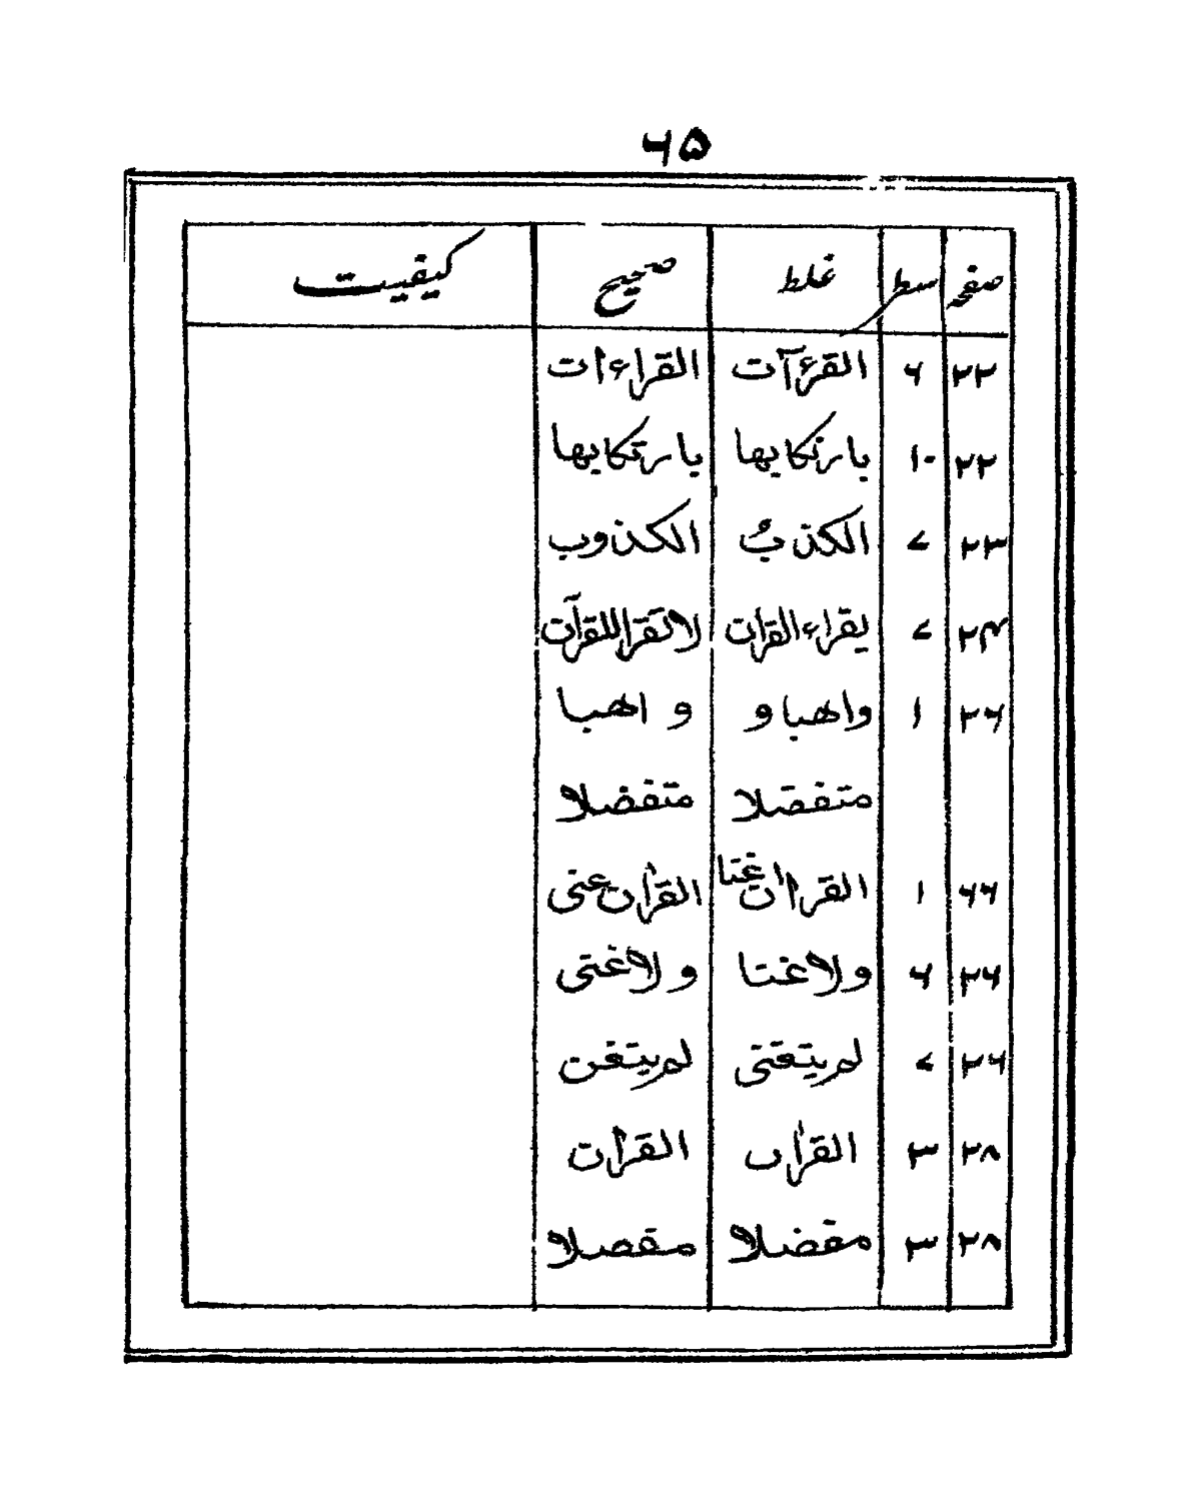 ۶۵
صفحہ سطر غلط صحیح کیفیت
۲۲ ۶ القرءآت القراءات
۲۲ ۱۰ بارنکابها بارتکابها
۲۳ ۷ الکذبُ الکذوب
۲۴ ۷ یقراء القرآن لاتقرا للقرآن
۲۶ ۱ واهباو و اهبا
متفصلا متفضلا
۶۶ ۱ القرات غتا القرآن غنی
۲۶ ۶ ولاغتا ولاغنی
۲۶ ۷ لم یتغنی لم یتغن
۲۸ ۳ القرآں القرآن
۲۸ ۳ مفضلا مفصلا